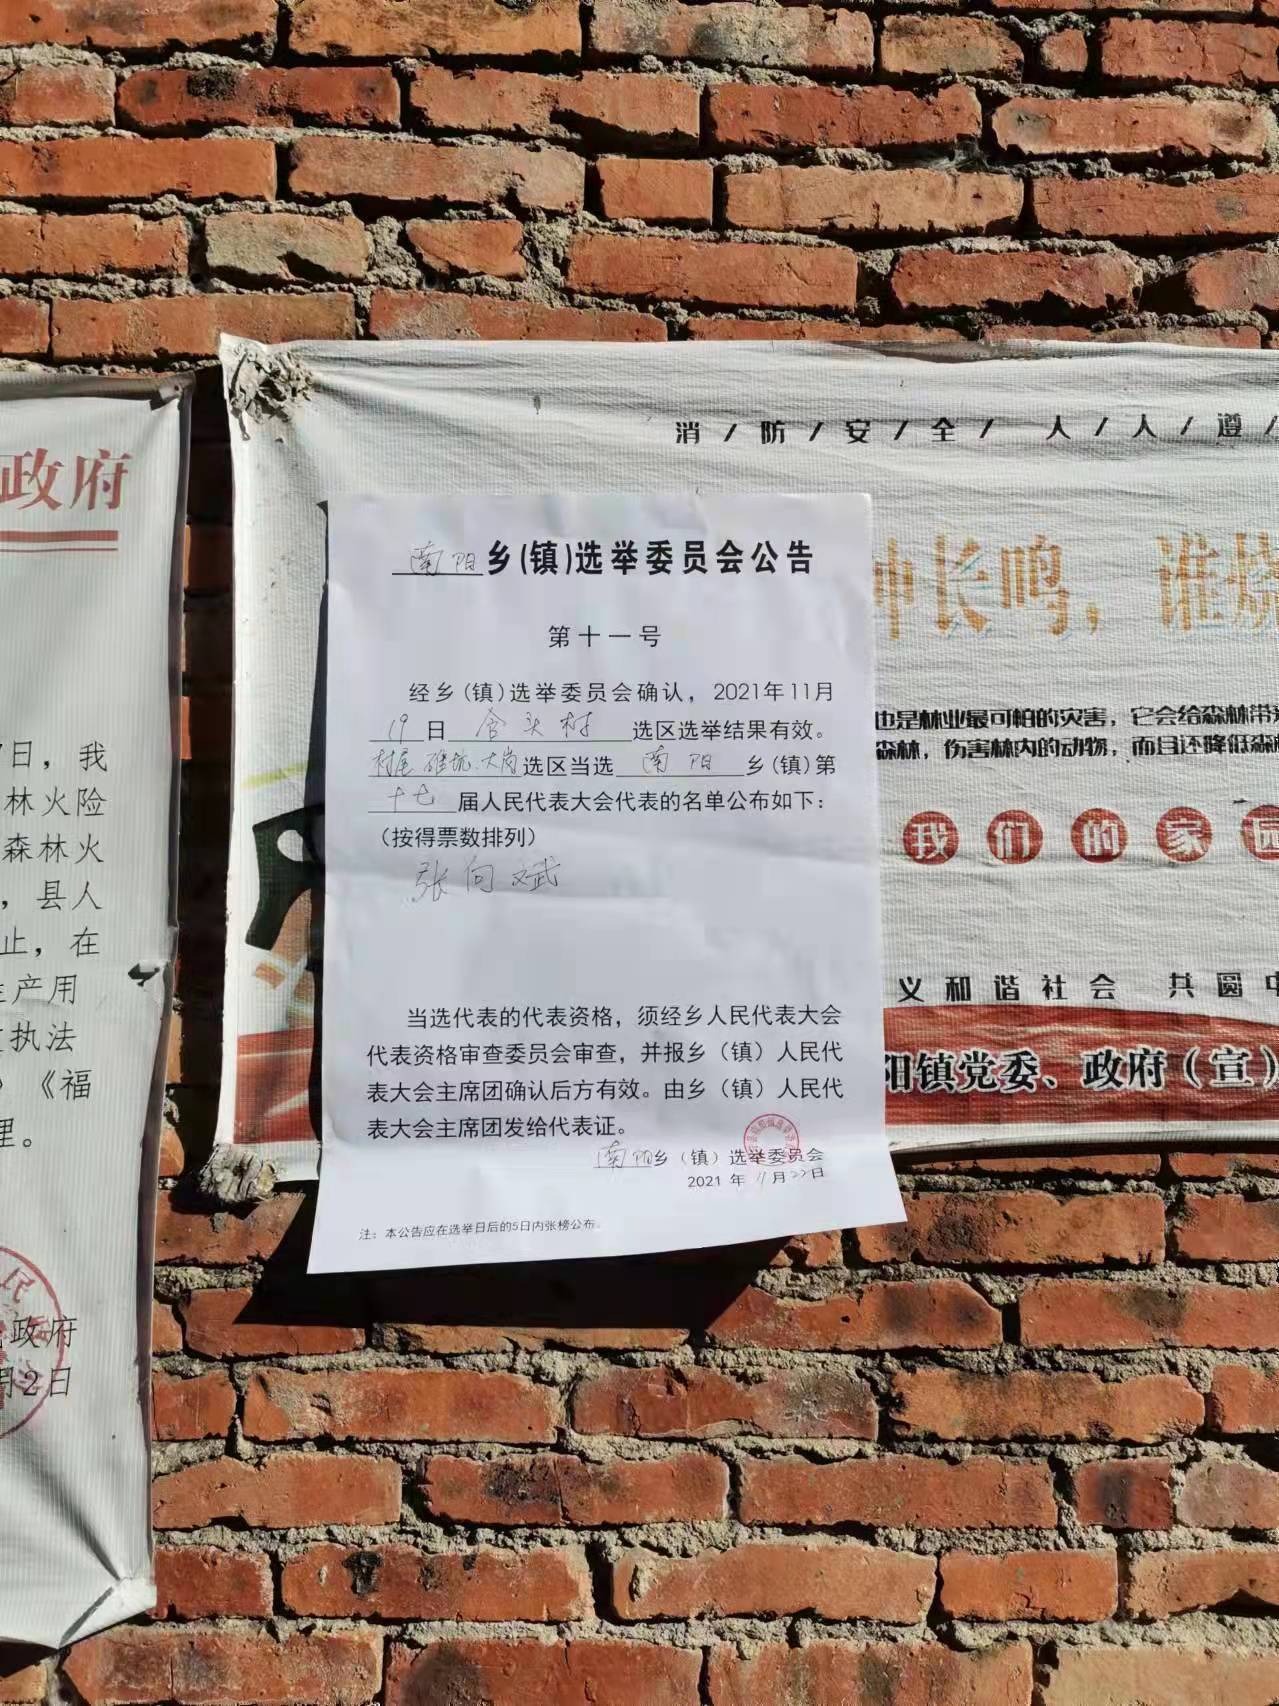 政府
日，我
林火险
森林火
，县人
止，在
产用
执法
》《福
理。
政府
月2日
消/防/安/全/ 人/人/遵/
钟长鸣，谁烧
也是林业最可怕的灾害，它会给森林带
森林，伤害林内的动物，而且还降低森
我们的家园
义和谐社会 共圆中
阳镇党委、政府（宣）
南阳乡(镇)选举委员会公告
第十一号
经乡(镇)选举委员会确认，2021年11月
19日 含头村 选区选举结果有效。
村尾 碓坑、大岗选区当选 南阳 乡(镇)第
十七 届人民代表大会代表的名单公布如下：
（按得票数排列）
张向斌
当选代表的代表资格，须经乡人民代表大会
代表资格审查委员会审查，并报乡（镇）人民代
表大会主席团确认后方有效。由乡（镇）人民代
表大会主席团发给代表证。
南阳乡（镇）选举委员会
2021 年 11 月 22 日
注：本公告应在选举日后的5日内张榜公布。